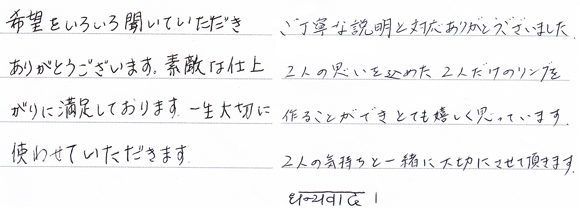 希望をいろいろ聞いていただき
ありがとうございます。素敵な仕上
がりに満足しております。一生大切に
使わせていただきます。
ご丁寧な説明と対応ありがとうございました。
2人の思いを込めた2人だけのリングを
作ることができとても嬉しく思っています。
2人の気持ちと一緒に大切にさせて頂きます。
ધન્યવાદ !